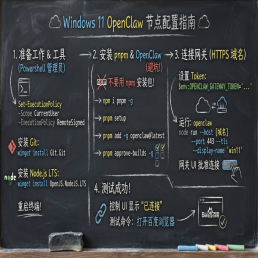 Windows 11 OpenClaw 节点配置指南
1. 准备工作 & 工具
(Powershell 管理员)
Set-ExecutionPolicy
-Scope CurrentUser
-ExecutionPolicy RemoteSigned
安装 Git:
winget install Git.Git
node
安装 Node.js LTS:
winget install OpenJS.NodeJS.LTS
重启终端!
2. 安装 pnpm & OpenClaw
(避坑!)
不要用 npm 安装包!
→ npm i pnpm -g
→ pnpm setup
→ pnpm add -g openclaw@latest
→ pnpm approve-builds -g
3. 连接网关 (HTTPS 域名)
设置 Token:
$env:OPENCLAW_GATEWAY_TOKEN='...'
运行: openclaw
node run --host [域名]
--port 443 --tls
--display-name 'win11'
网关 UI 批准连接
4. 测试成功!
控制 UI 显示 "已连接"
测试命令: 打开百度浏览器